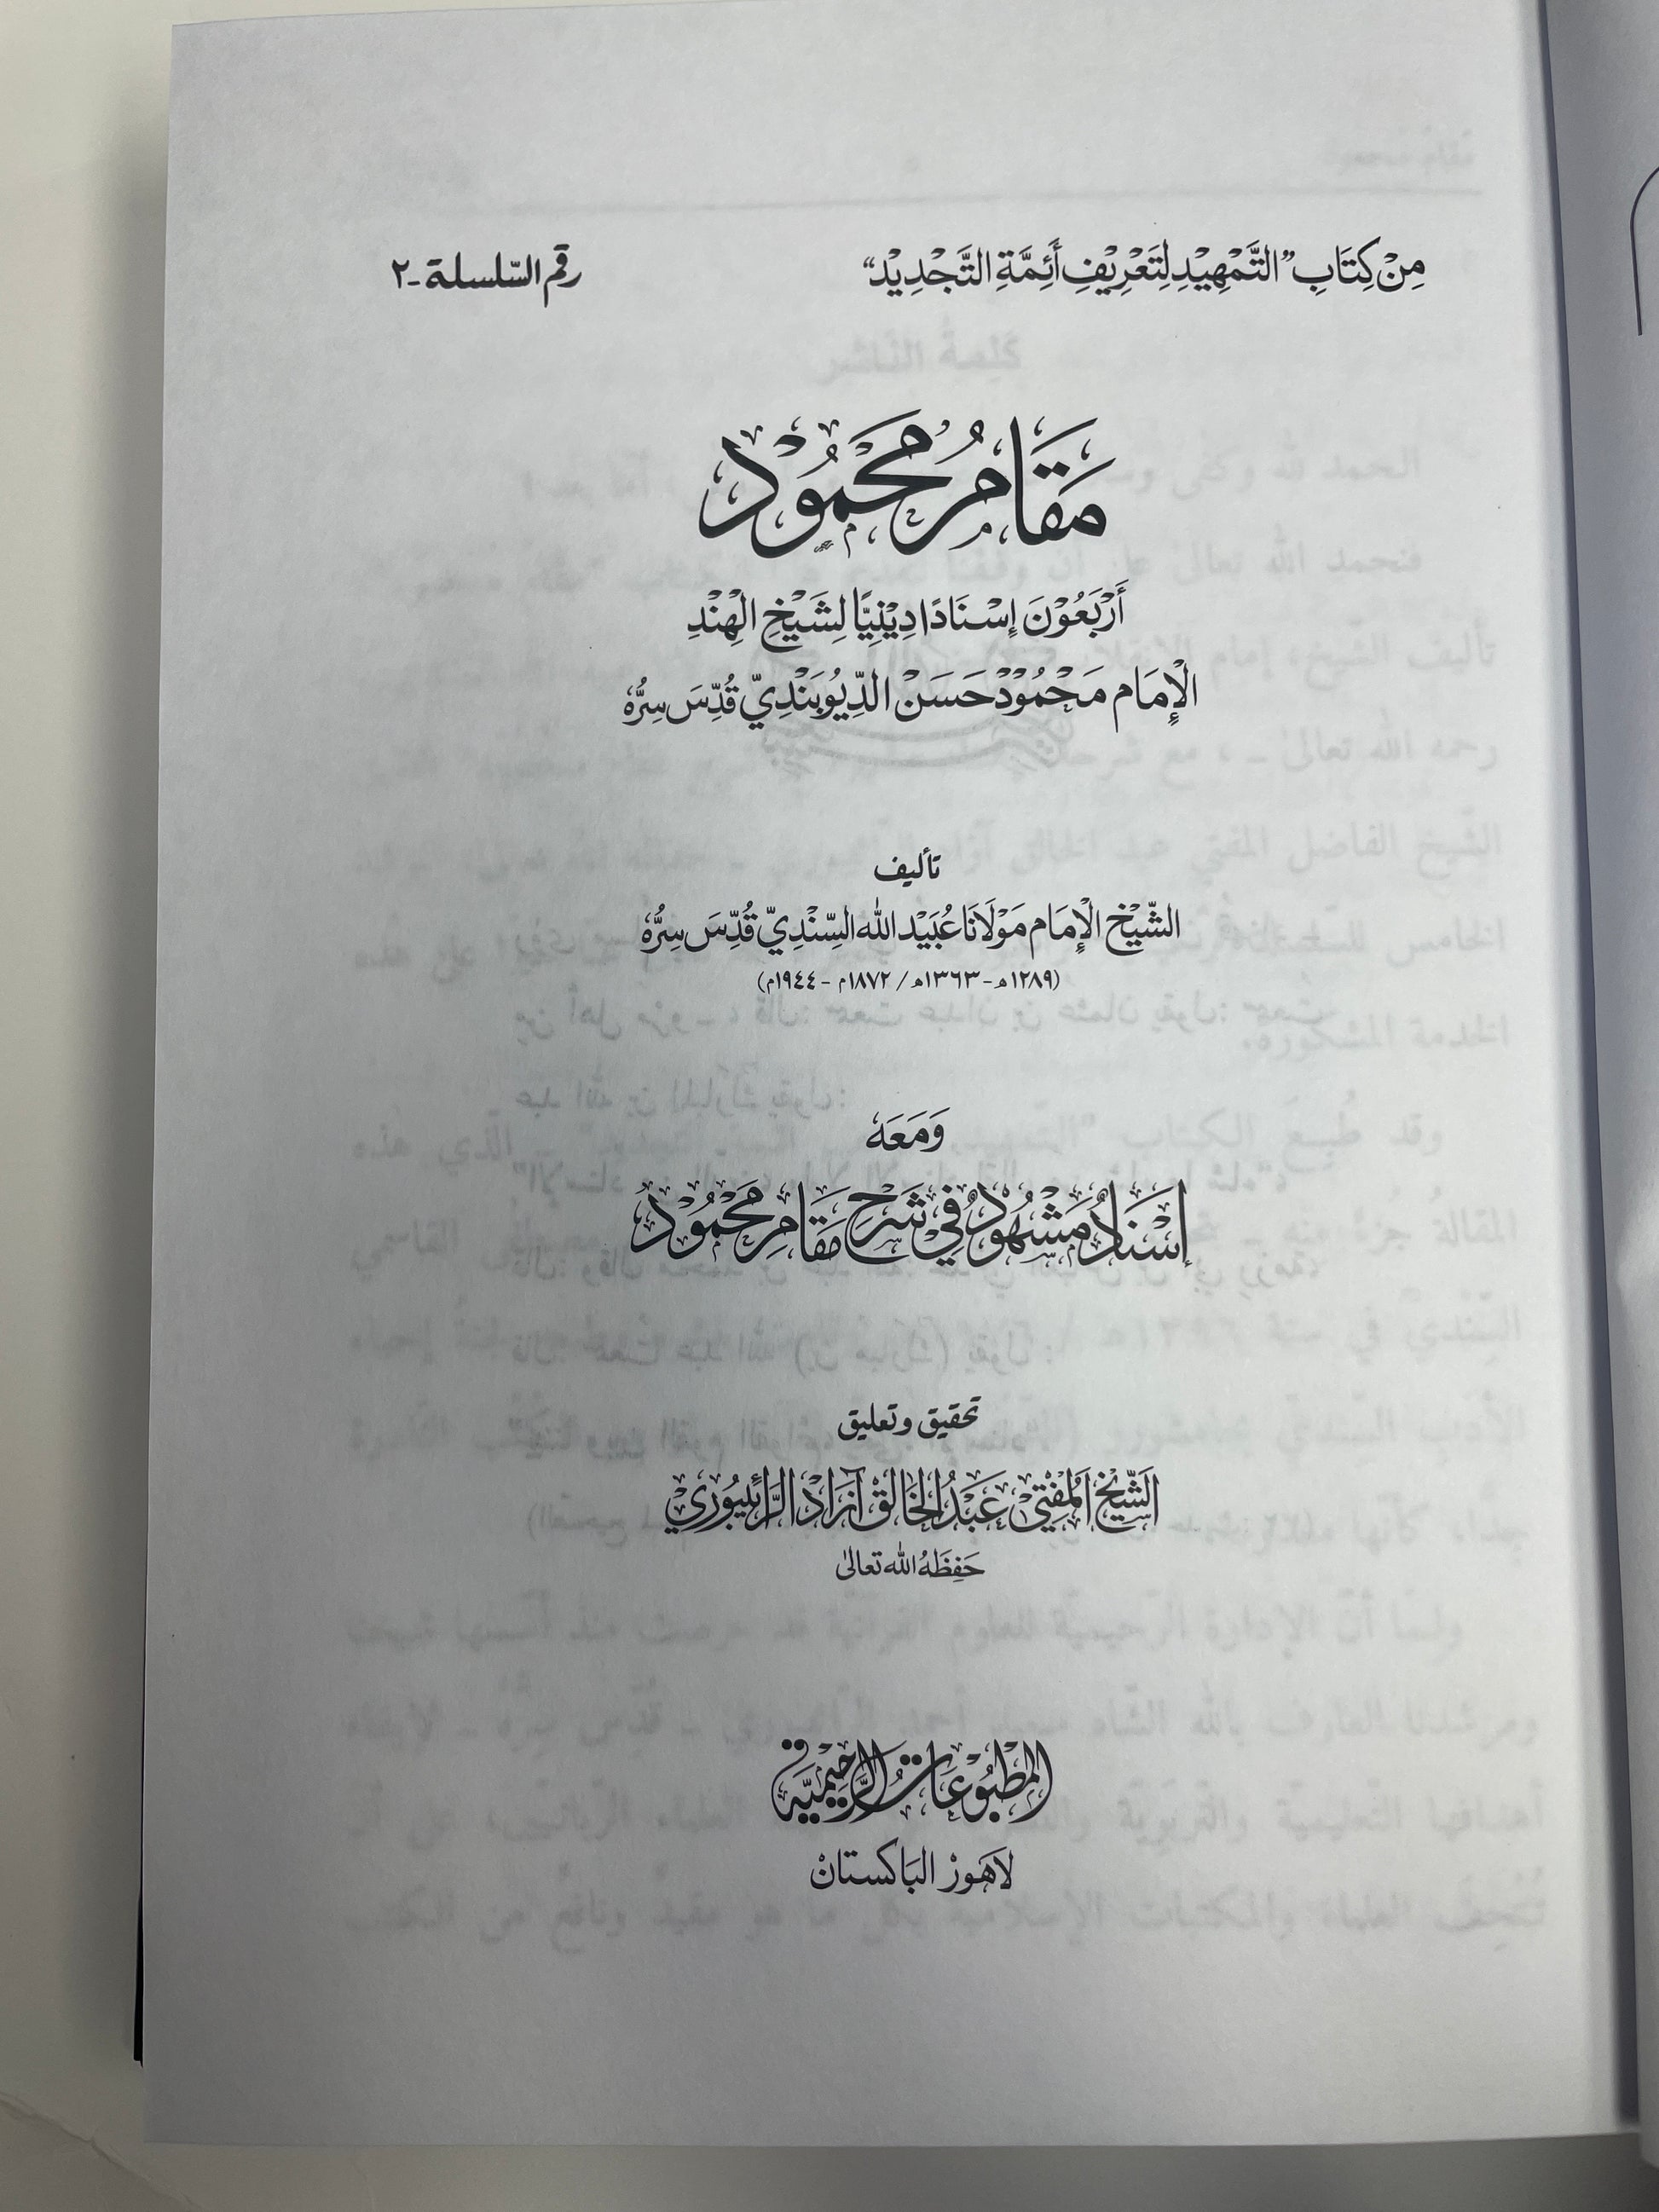 مِنْ كِتَابِ "التَّمْهِيْدِ لِتَعْرِيْفِ أَئِمَّةِ التَّجْدِيْد"
رقم السّلسلة ـ ٢
مَقَامُ مَحْمُوْد
أَرْبَعُوْنَ إِسْنَادًا دِيْنِيًّا لِشَيْخِ الْهِنْدِ
الْإِمَام مَحْمُوْدْ حَسَنْ الدِّيُوبَنْدِيّ قُدِّسَ سِرُّهٗ
تأليف
الشَّيْخ الْإِمَام مَوْلَانَا عُبَيْد الله السِّنْدِيّ قُدِّسَ سِرُّهٗ
(١٢٨٩هـ - ١٣٦٣هـ / ١٨٧٢م - ١٩٤٤م)
وَمَعَهٗ
إِسْنَادٌ مَشْهُوْدٌ فِيْ شَرْحِ مَقَامِ مَحْمُوْدٍ
تحقيق وتعليق
الشَّيْخ الْمُفْتِيْ عَبْدُ الْخَالِقْ آزَادْ الرَّائِيبُورِيْ
حَفِظَهُ الله تعالىٰ
الْمَطْبُوْعَاتُ الرَّحِيْمِيَّة
لَاهَوْرْ الْبَاكِسْتَانْ